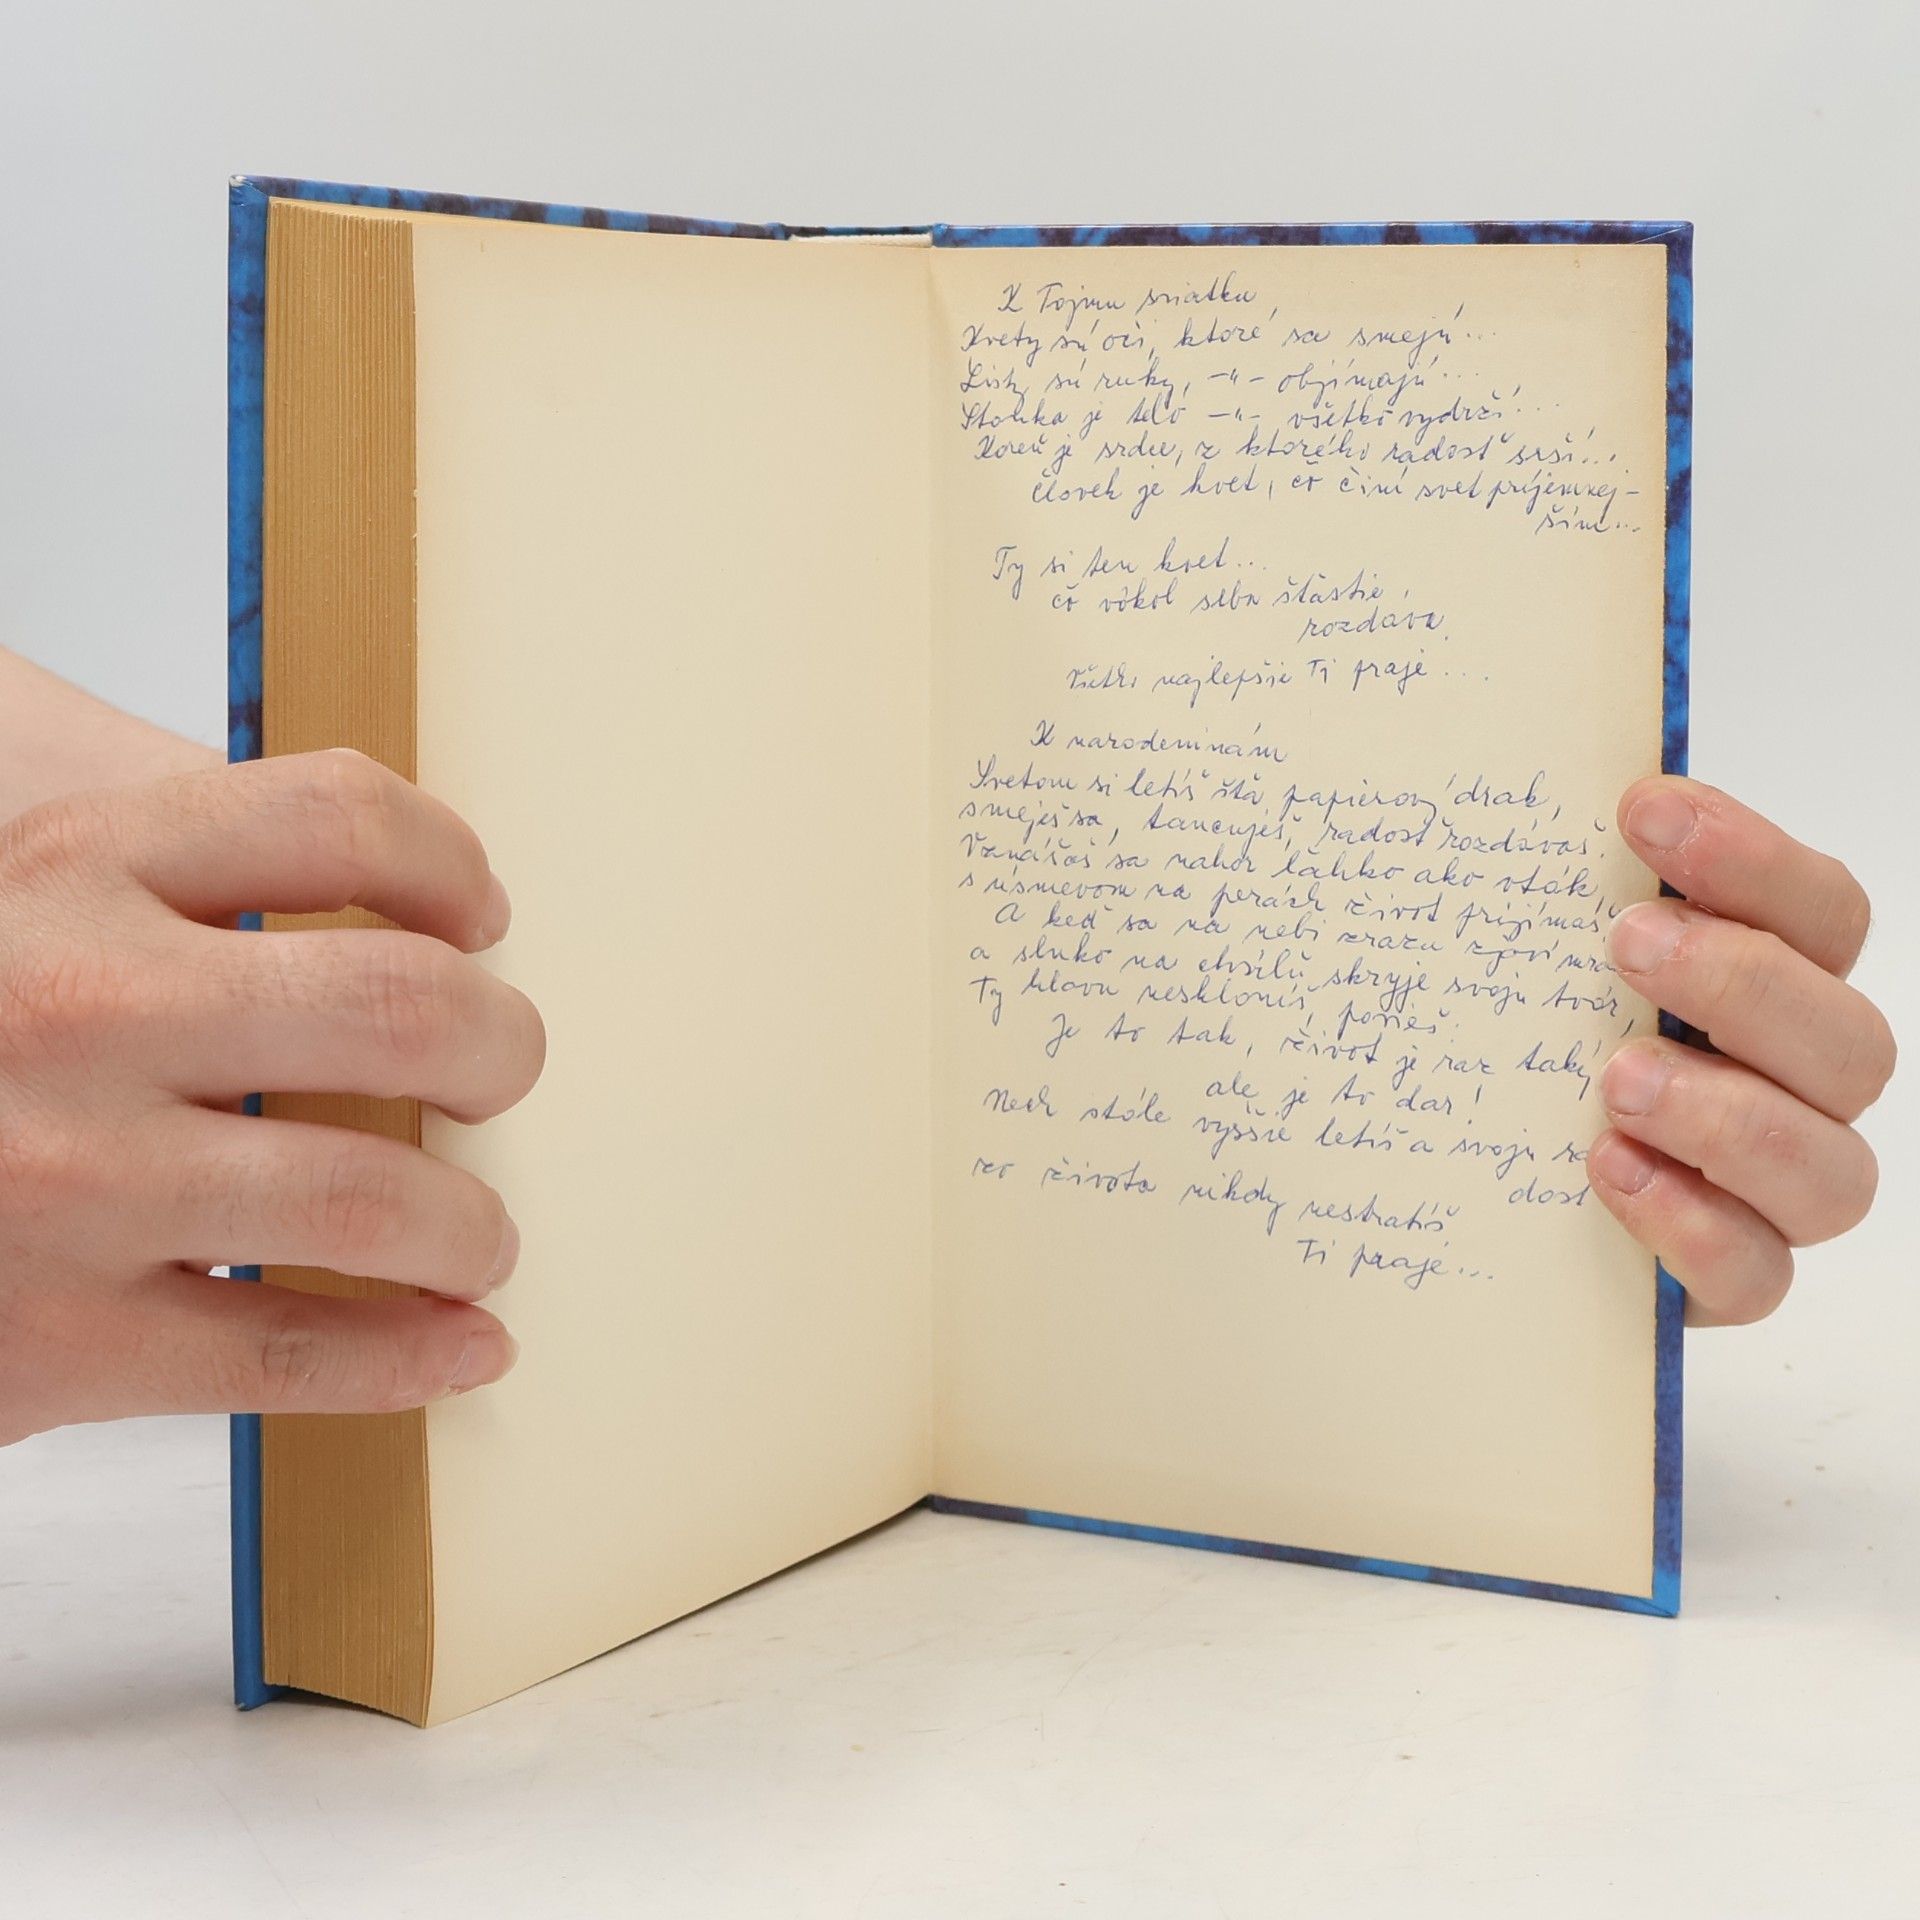 K Tojmu sviatku
Kvety sú oči, ktoré sa smejú...
Listy sú ruky, -"- objímajú...
Stonka je telo -"- všetko vydrží...
Koreň je srdce, z ktorého radosť srší...
človek je kvet, čo činí svet príjemnej-
ším...
Ty si ten kvet...
čo vôkol seba šťastie
rozdáva.
Všetko najlepšie Ti praje...
K narodeninám
Svetom si letíš šťa papierový drak,
smeješ sa, tancuješ, radosť rozdávaš.
Vznášaš sa nahor ľahko ako vták,
s úsmevom na perách život prijímaš.
A keď sa na nebi zrazu zjaví mra
a slnko na chvíľu skryje svoju tvár,
Ty hlavu neskloníš, povieš:
Je to tak, život je raz taký
ale je to dar!
Nech stále vyššie letíš a svoju ra
dosť
zo života nikdy nestratíš
Ti praje...